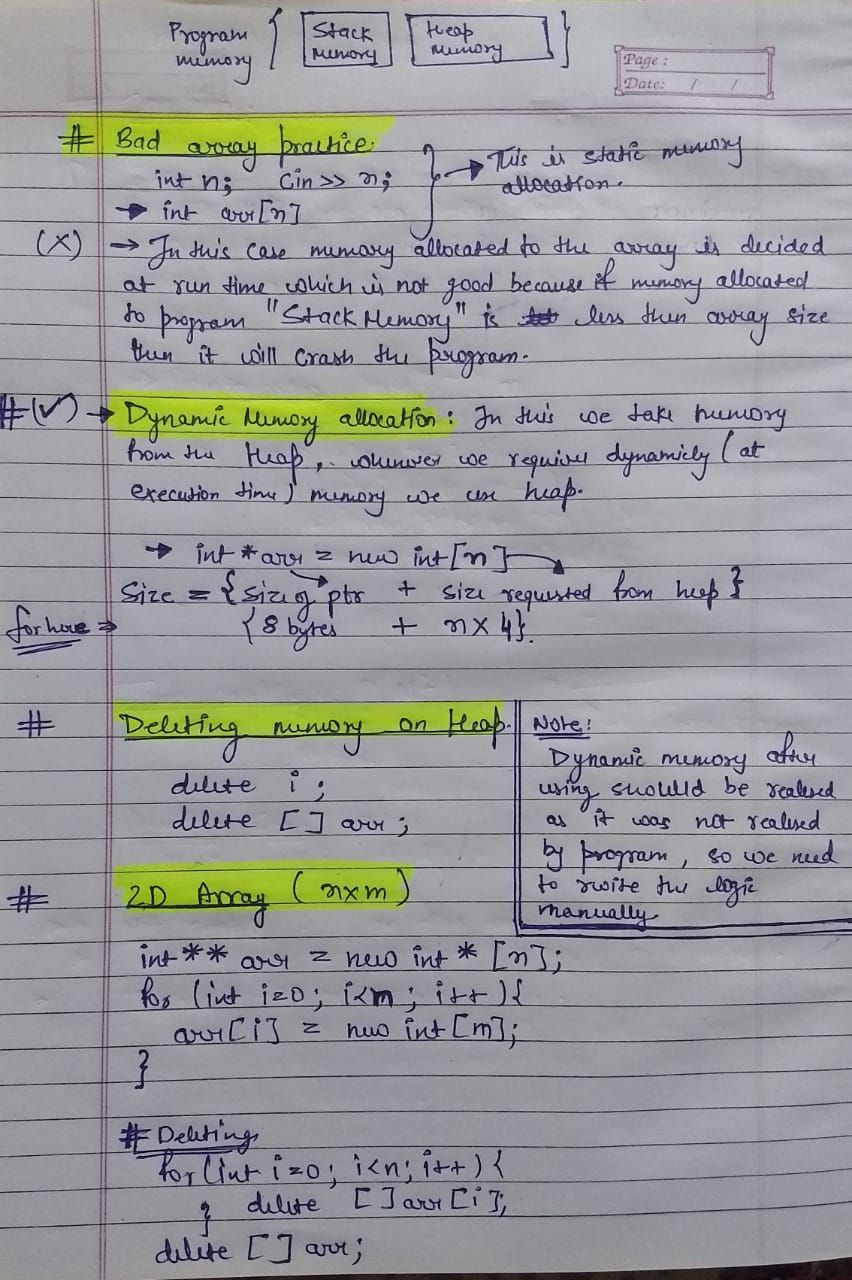 Program memory { Stack Memory Heap memory }
Page :
Date: / /
# Bad array practice.
int n; Cin >> n;
→ int arr[n]
} → This is static memory
allocation.
(X) → In this case memory allocated to the array is decided
at run time which is not good because if memory allocated
to program "Stack Memory" is less then array size
then it will crash the program.
#(✓) → Dynamic Memory allocation : In this we take memory
from the Heap, whenever we require dynamicly (at
execution time) memory we use heap.
→ int *arr = new int[n]
Size = {size of ptr + size requested from heep}
for here ⇒ {8 bytes + n x 4}.
# Deleting memory on Heap.
delete i ;
delete [] arr ;
Note:
Dynamic memory after
using should be realesed
as it was not realesed
by program, so we need
to rwite the logic
manually
# 2D Array (nxm)
int ** arr = new int * [n];
for (int i=0; i<n; i++){
arr[i] = new int[m];
}
# Deleting
for(int i=0; i<n; i++){
delete []arr[i];
}
delete [] arr;